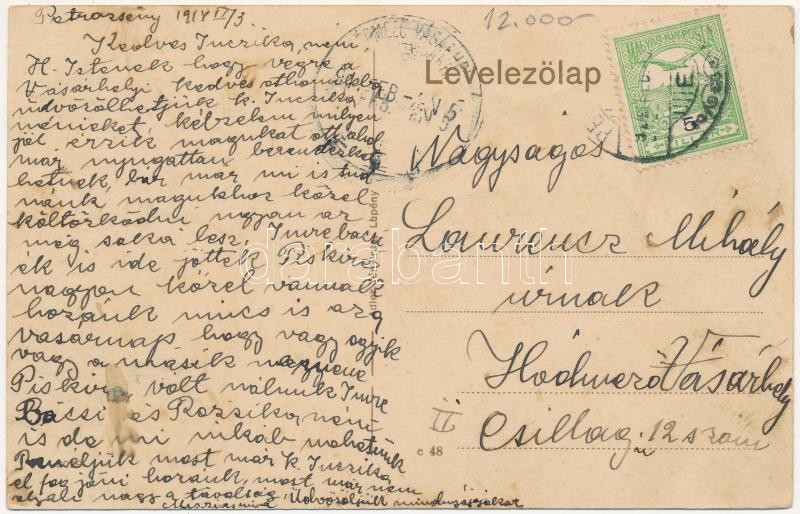 Petrozsény 1914 II/3
Kedves Inczike néni,
H. Istenek hogy végre a
Vásárhelyi kedves otthonukba
üdvözölhetjük k. Inczike
nénieket, képzelem milyen
jól érzik magukat ott ahol
már nyugattan berendezked
hetnek, bár mar mi is tud
nánk magukhoz közel
költözködni ugyan az
még soká lesz. Imre bacsi
ék is ide jöttek Piskire
nagyon közel vannak
hozánk nincs is arra
vasárnap hogy vagy egyik
vagy a másik
Piskire, volt nálunk Imre
Bácsi és Rozsika néni
is de mi inkáb mehetünk
Reméljük most már k. Inczike
el fog jöni hozánk, most már nem
olyan nagy a távolság. Üdvözöljük mindnyájukat
Levelezőlap
12.000-
MAGYAR KIR. POSTA
5
Nagyságos
Lawrencz Mihály
úrnak
Hódmező Vásárhely
II
Csillag u. 12 szám
c 48
Lupény
darabanth